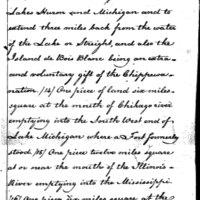 Lakes Huron and Michigan and to
extend three miles back from the water
of the Lake or Streight, and also the
Island de Bois Blanc being an extra
and voluntary gift of the Chippewa
nation. (14) One piece of land six miles
square at the mouth of Chikago river
emptying into the South West end of
Lake Michigan where a Fort formerly
stood. (15) One piece twelve miles square
at or near the mouth of the Illinois
River emptying into the Mississippi.
(16) One piece six miles square at the